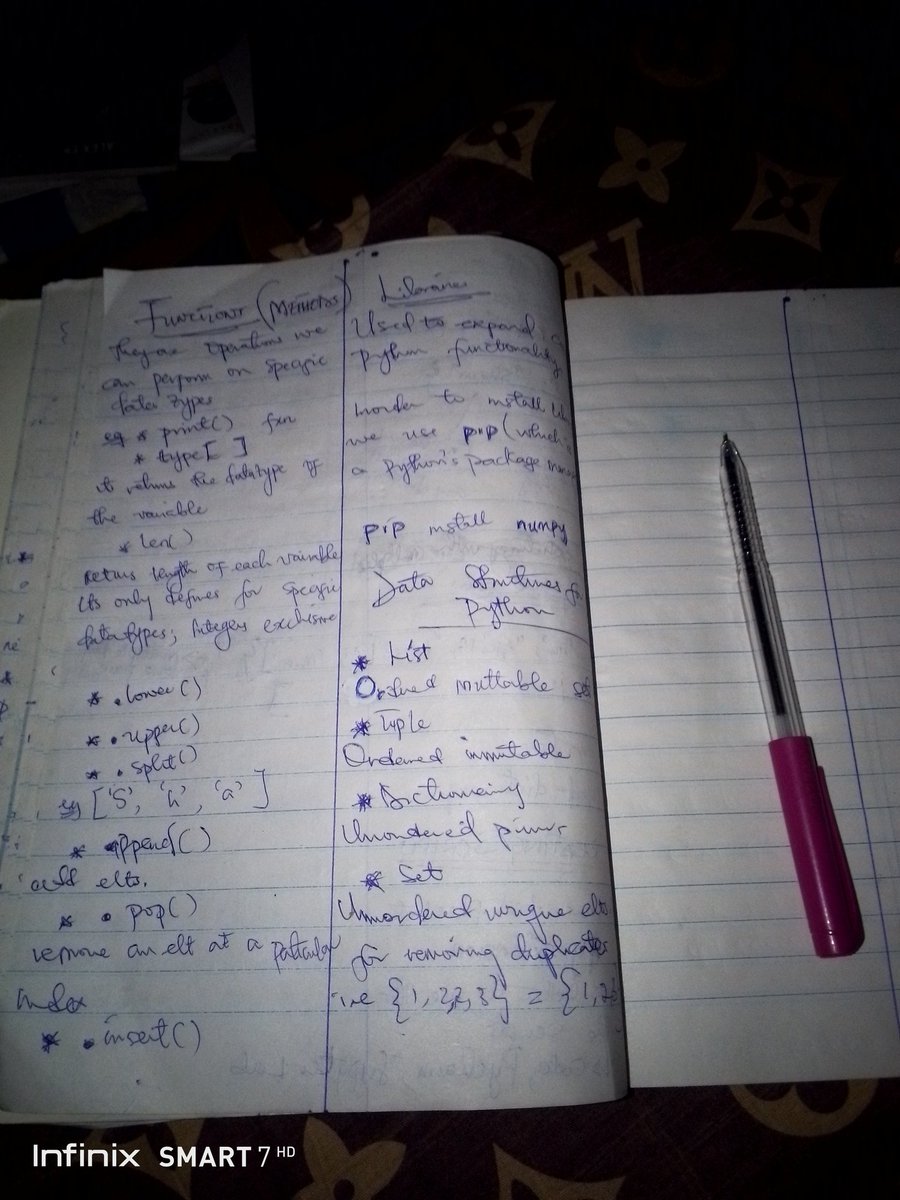 FUNCTIONS (METHODS)
They are operations we
can perform on specific
data types
eg * print() fxn
* type[ ]
it returns the datatype of
the variable
* len()
returns length of each variable
Its only defines for specific
datatypes, integers exclusive
* .lower()
* .upper()
* .split()
eg ['S', 'h', 'a']
* append()
add elts.
* .pop()
remove an elt at a particular
index
* .insert()
Libraries
Used to expand
python functionality
Inorder to install
we use pip (which is
a python's package
pip install numpy
Data Structures for
Python
* List
Ordered muttable set
* Tuple
Ordered immutable
* Dictionairy
Unordered
* Set
Unordered unique elts
for removing duplicates
ie {1, 2,2, 3} = {1, 2
Infinix SMART 7 HD